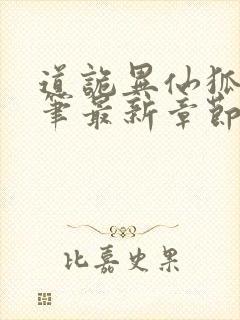 道诡异仙狐
笔最新章節
比嘉史果